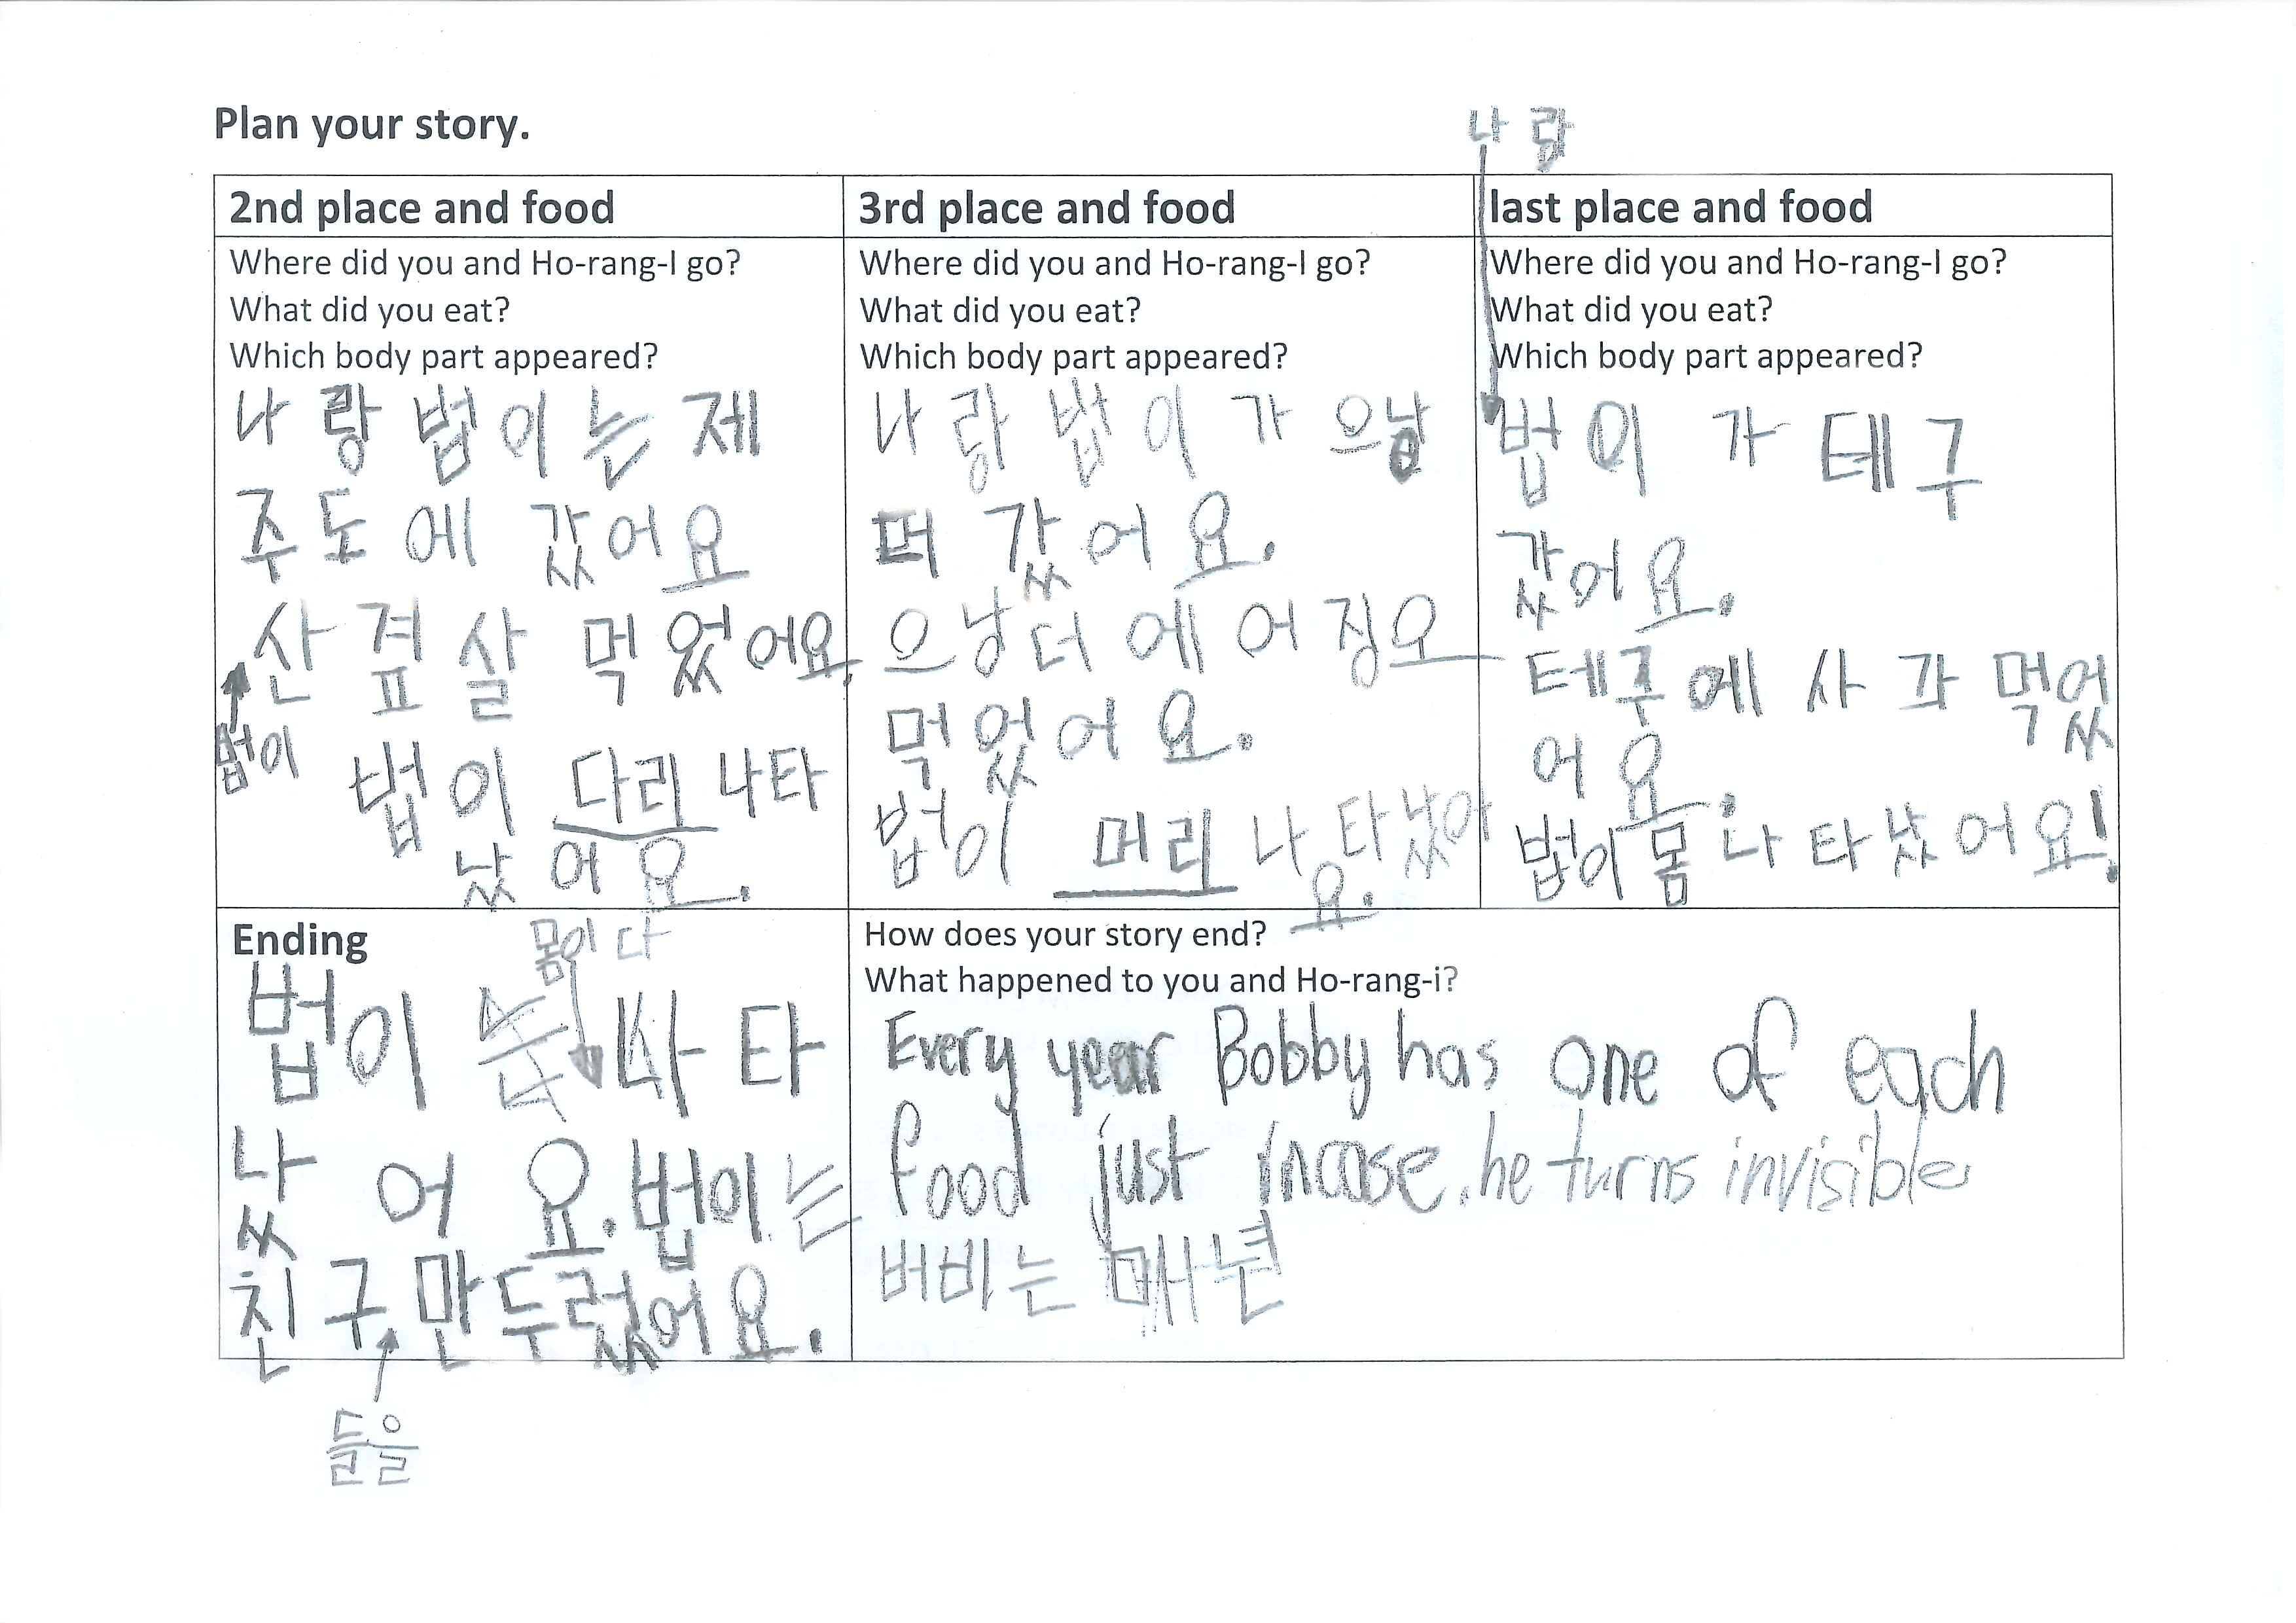 Plan your story.
나 랑
2nd place and food
Where did you and Ho-rang-I go?
What did you eat?
Which body part appeared?
나 랑 법 이 는 제
주 도 에 갔 어 요
산 겹 살 먹 었 어요.
법이
법 이 다리 나타
났 어 요.
3rd place and food
Where did you and Ho-rang-I go?
What did you eat?
Which body part appeared?
나 랑 법 이 가 으낭
떠 갔 어 요.
으 낭 더 에 어 징오
먹 었 어 요.
법이 머리 나 타 났어
요.
last place and food
Where did you and Ho-rang-I go?
What did you eat?
Which body part appeared?
법 이 가 테 구
갔어 요.
테구 에 사 과 먹었
어 요.
법이 몸 나 타 났 어 요!
Ending
몸이 다
법이 나 타
났 어 요. 법이 는
친 구 만 두렀어 요.
들을
How does your story end?
What happened to you and Ho-rang-i?
Every year Bobby has one of each
food just incase he turns invisible
버비 는 매녀